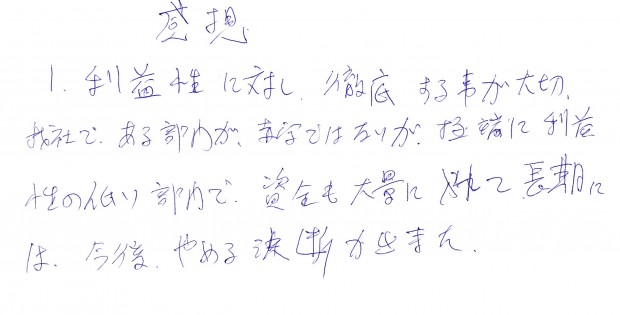 感想
1. 利益性に対し、徹底する事が大切、
我社で、ある部門が、赤字ではないが、極端に利益
性の低い部門で、資金も大量に て、長期に
は、今後、やめる決断ができました。